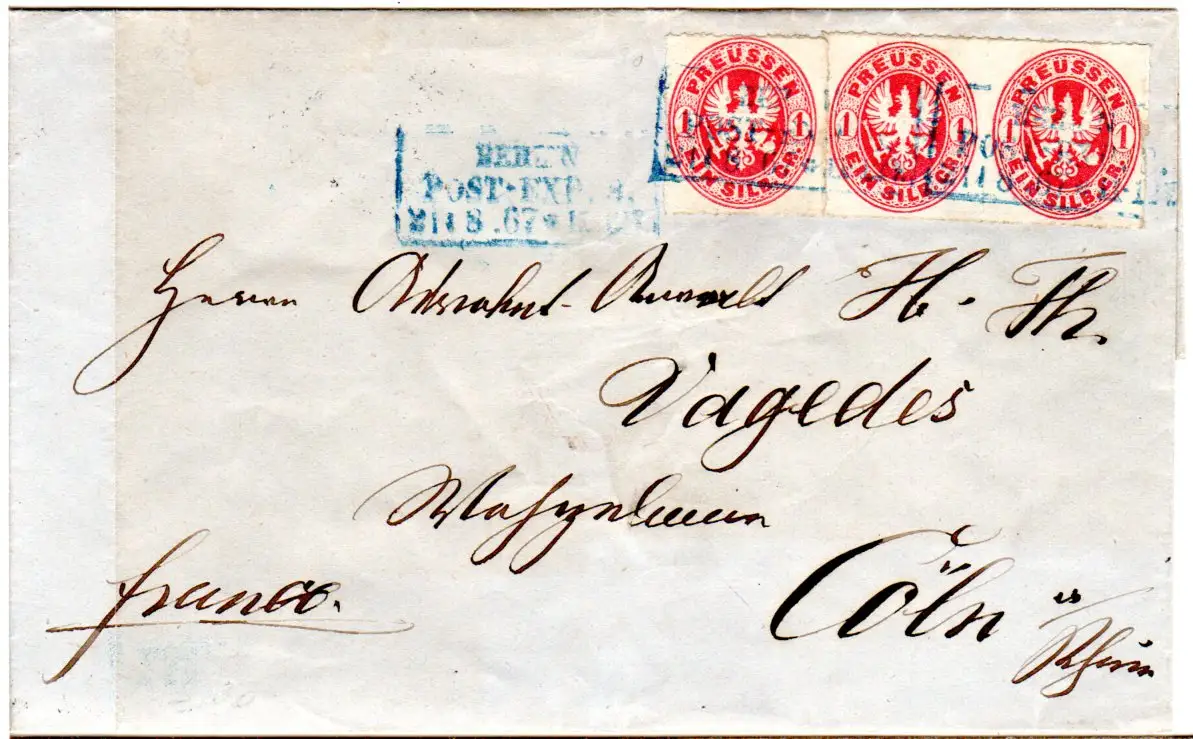 PREUSSEN 1 1 EIN SILB.GR.
PREUSSEN 1 1 EIN SILB.GR.
PREUSSEN 1 1 EIN SILB.GR.
BERLIN
POST-EXP.
21 8 .67
Herrn Advokat-Anwalt H. Th.
Vagedes
franco.
Cöln a/Rhein